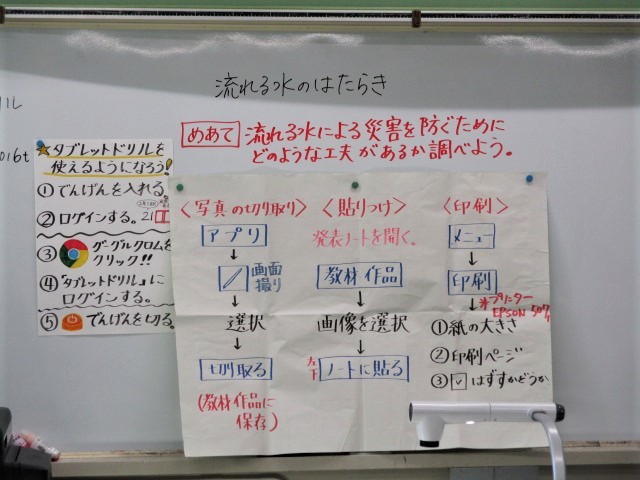 流れる水のはたらき
めあて 流れる水による災害を防ぐために
どのような工夫があるか調べよう。
ル
016t
★タブレットドリルを
使えるようになろう!
①でんげんを入れる。
②ログインする。
③グーグルクロムを
クリック!!
④「タブレットドリル」に
ログインする。
⑤でんげんを切る。
〈写真の切り取り〉
アプリ
↓
画面
撮り
↓
選択
↓
切り取る
(教材作品に
保存)
〈貼りつけ〉
発表ノートを開く。
教材作品
↓
画像を選択
↓
左下 ノートに貼る
〈印刷〉
メニュー
↓
印刷
↓ ※プリンター
EPSON
①紙の大きさ
②印刷ページ
③☑はずすかどうか